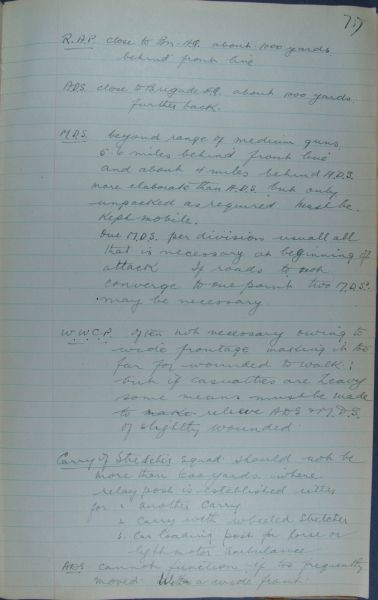 757
R.A.P. close to Bn. HQ. about 1000 yards
behind front line
A.D.S. close to Brigade HQ. about 1000 yards
further back.
M.D.S. beyond range of medium guns
5-6 miles behind front line
and about 4 miles behind A.D.S.
more elaborate than A.D.S. but only
unpacked as required must be
kept mobile.
One M.D.S. per division usually all
that is necessary at beginning of
attack If roads to not
converge to one point two M.D.Ss
may be necessary.
W.W.C.P. often not necessary owing to
wide frontage making it too
far for wounded to walk;
but if casualties are heavy
some means must be made
to make relieve ADS & M.D.S.
of slightly wounded.
Carry of Stretcher squad should not be
more than 600 yards. where
relay post is established either
for 1 another carry
2 carry with wheeled stretcher
3 car loading post for horse or
light motor ambulance
ADS cannot function if too frequently
moved. With a wide front